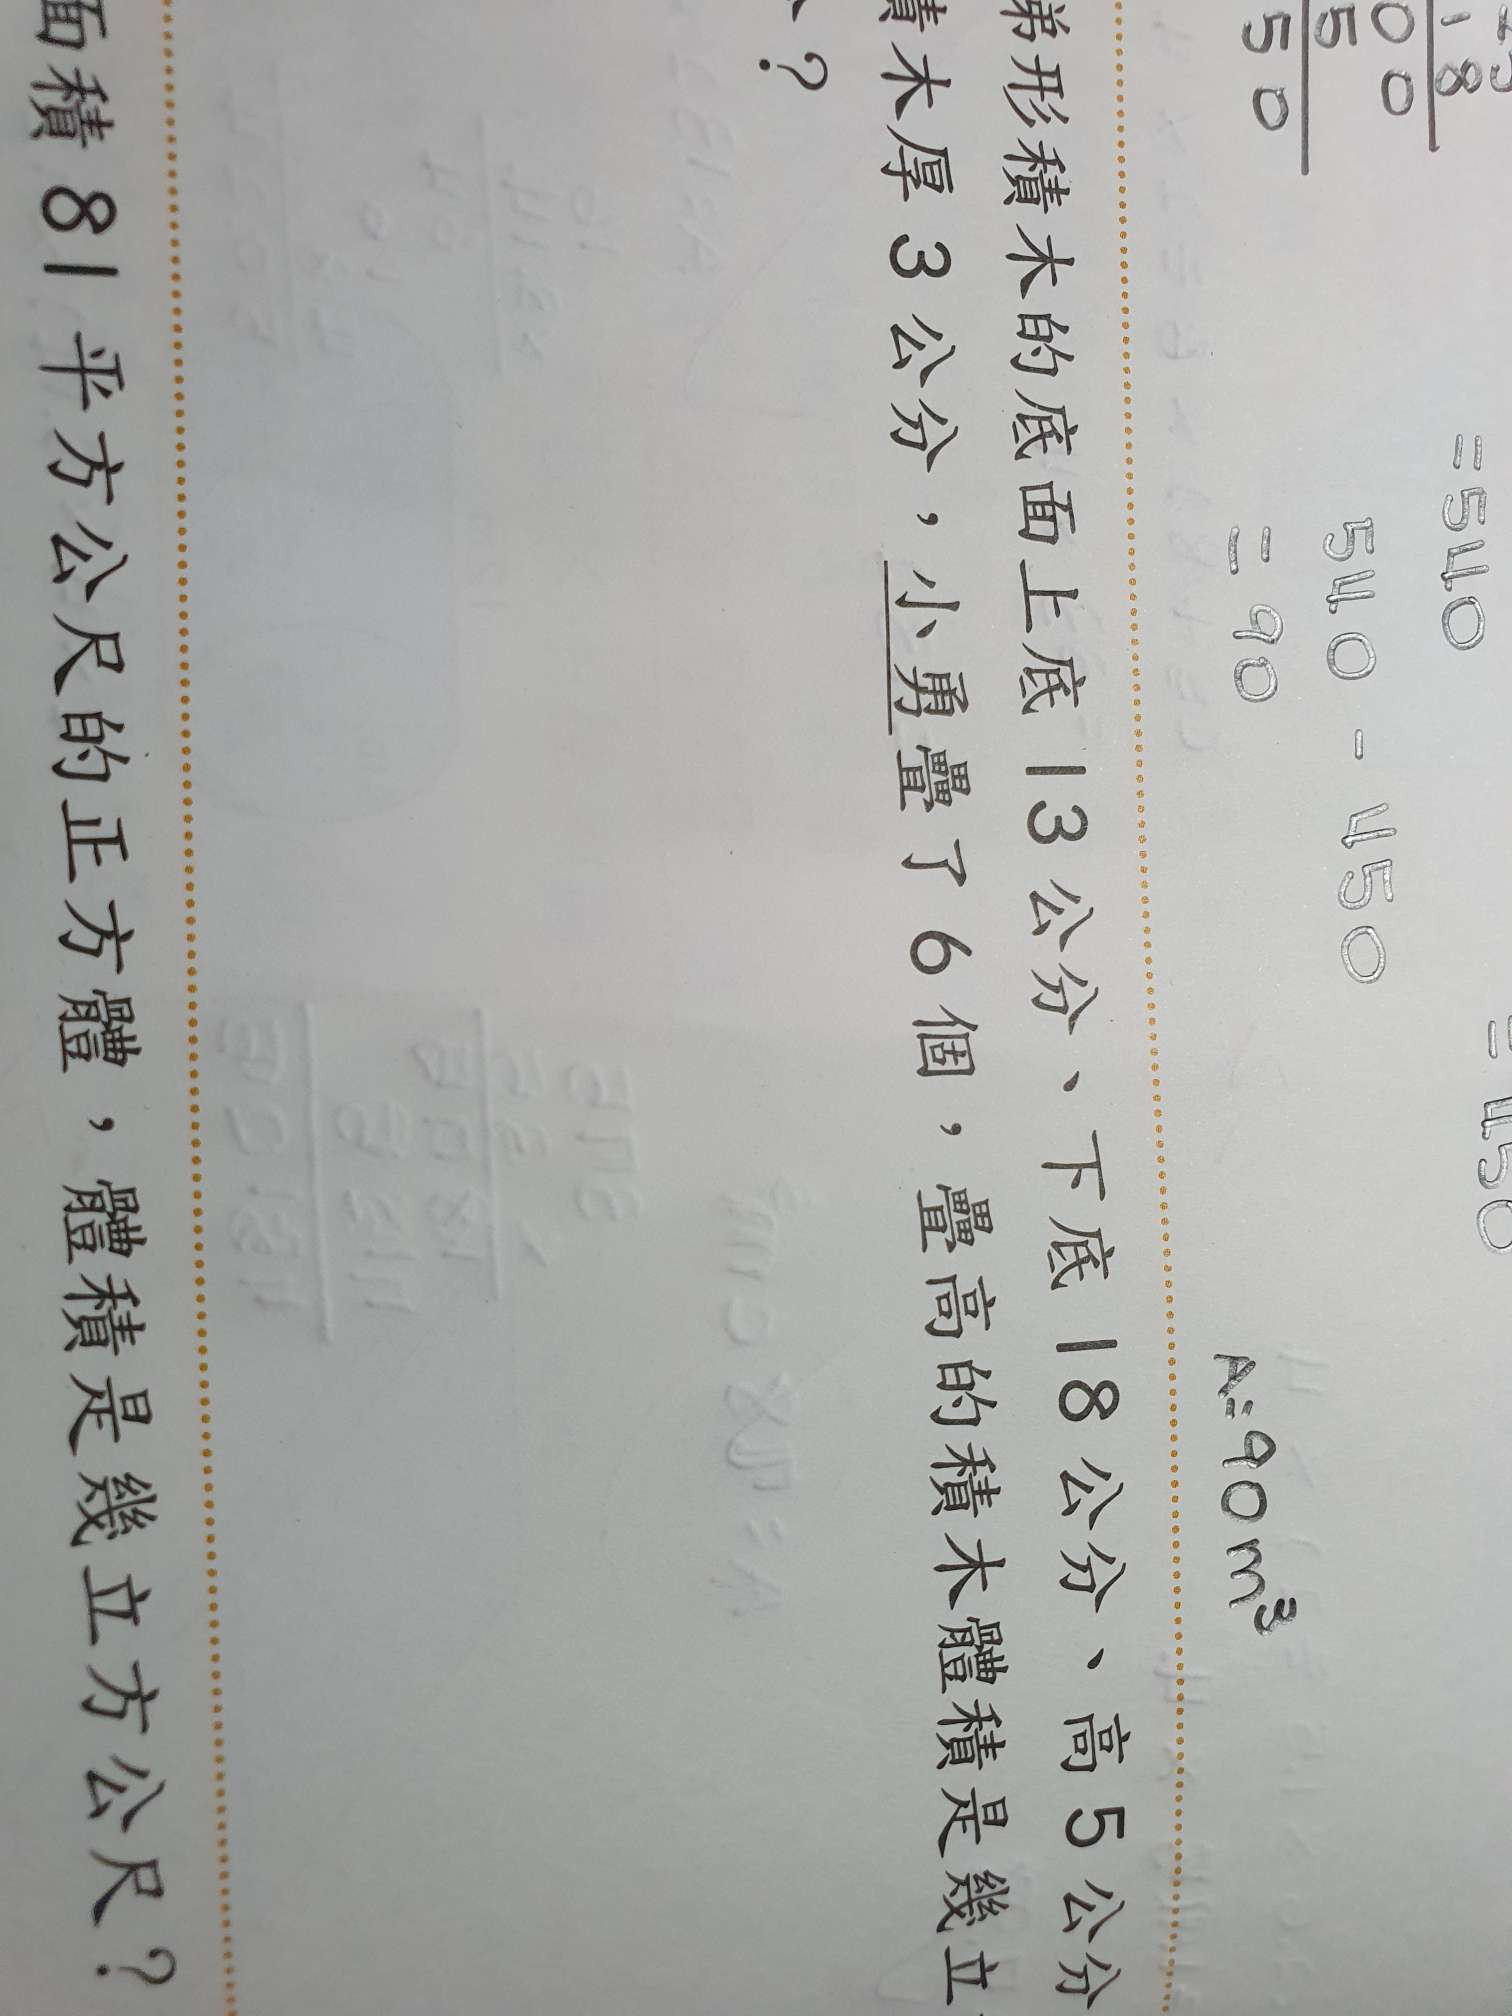 18
00
50
50
=540
=450
540-450
=90
A=90m³
梯形積木的底面上底13公分、下底18公分、高5公分
積木厚3公分，小勇疊了6個，疊高的積木體積是幾立
？
面積81平方公尺的正方體，體積是幾立方公尺？